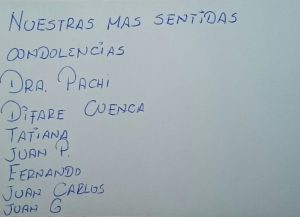 NUESTRAS MAS SENTIDAS
CONDOLENCIAS
DRA. PACHI
DIFARE CUENCA
TATIANA
JUAN P.
FERNANDO
JUAN CARLOS
JUAN G